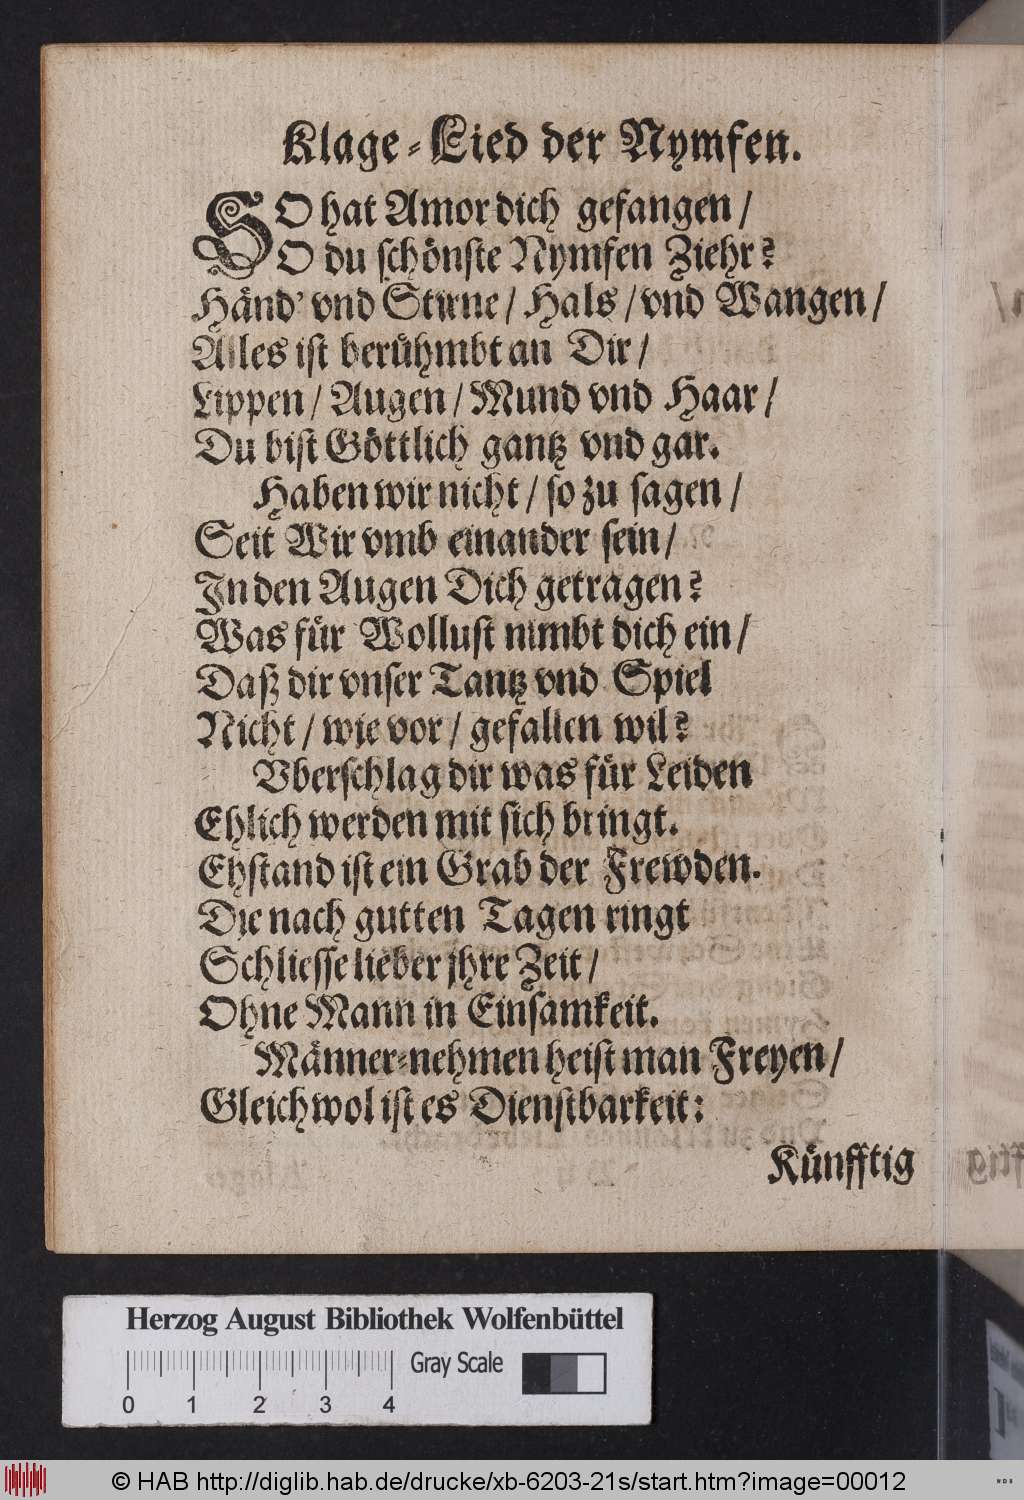 Klage-Lied der Nymfen.
SO hat Amor dich gefangen /
O du schönste Nymfen Ziehr?
Händ' vnd Stirne / Hals / vnd Wangen /
Alles ist berühmbt an Dir /
Lippen / Augen / Mund vnd Haar /
Du bist Göttlich gantz vnd gar.
Haben wir nicht / so zu sagen /
Seit Wir vmb einander sein /
In den Augen Dich getragen?
Was für Wollust nimbt dich ein /
Daß dir vnser Tantz vnd Spiel
Nicht / wie vor / gefallen wil?
Vberschlag dir was für Leiden
Ehlich werden mit sich bringt.
Ehstand ist ein Grab der Frewden.
Die nach gutten Tagen ringt
Schliesse lieber jhre Zeit /
Ohne Mann in Einsamkeit.
Männer-nehmen heist man Freyen /
Gleichwol ist es Dienstbarkeit:
Künfftig
Herzog August Bibliothek Wolfenbüttel
Gray Scale
0 1 2 3 4
© HAB http://diglib.hab.de/drucke/xb-6203-21s/start.htm?image=00012